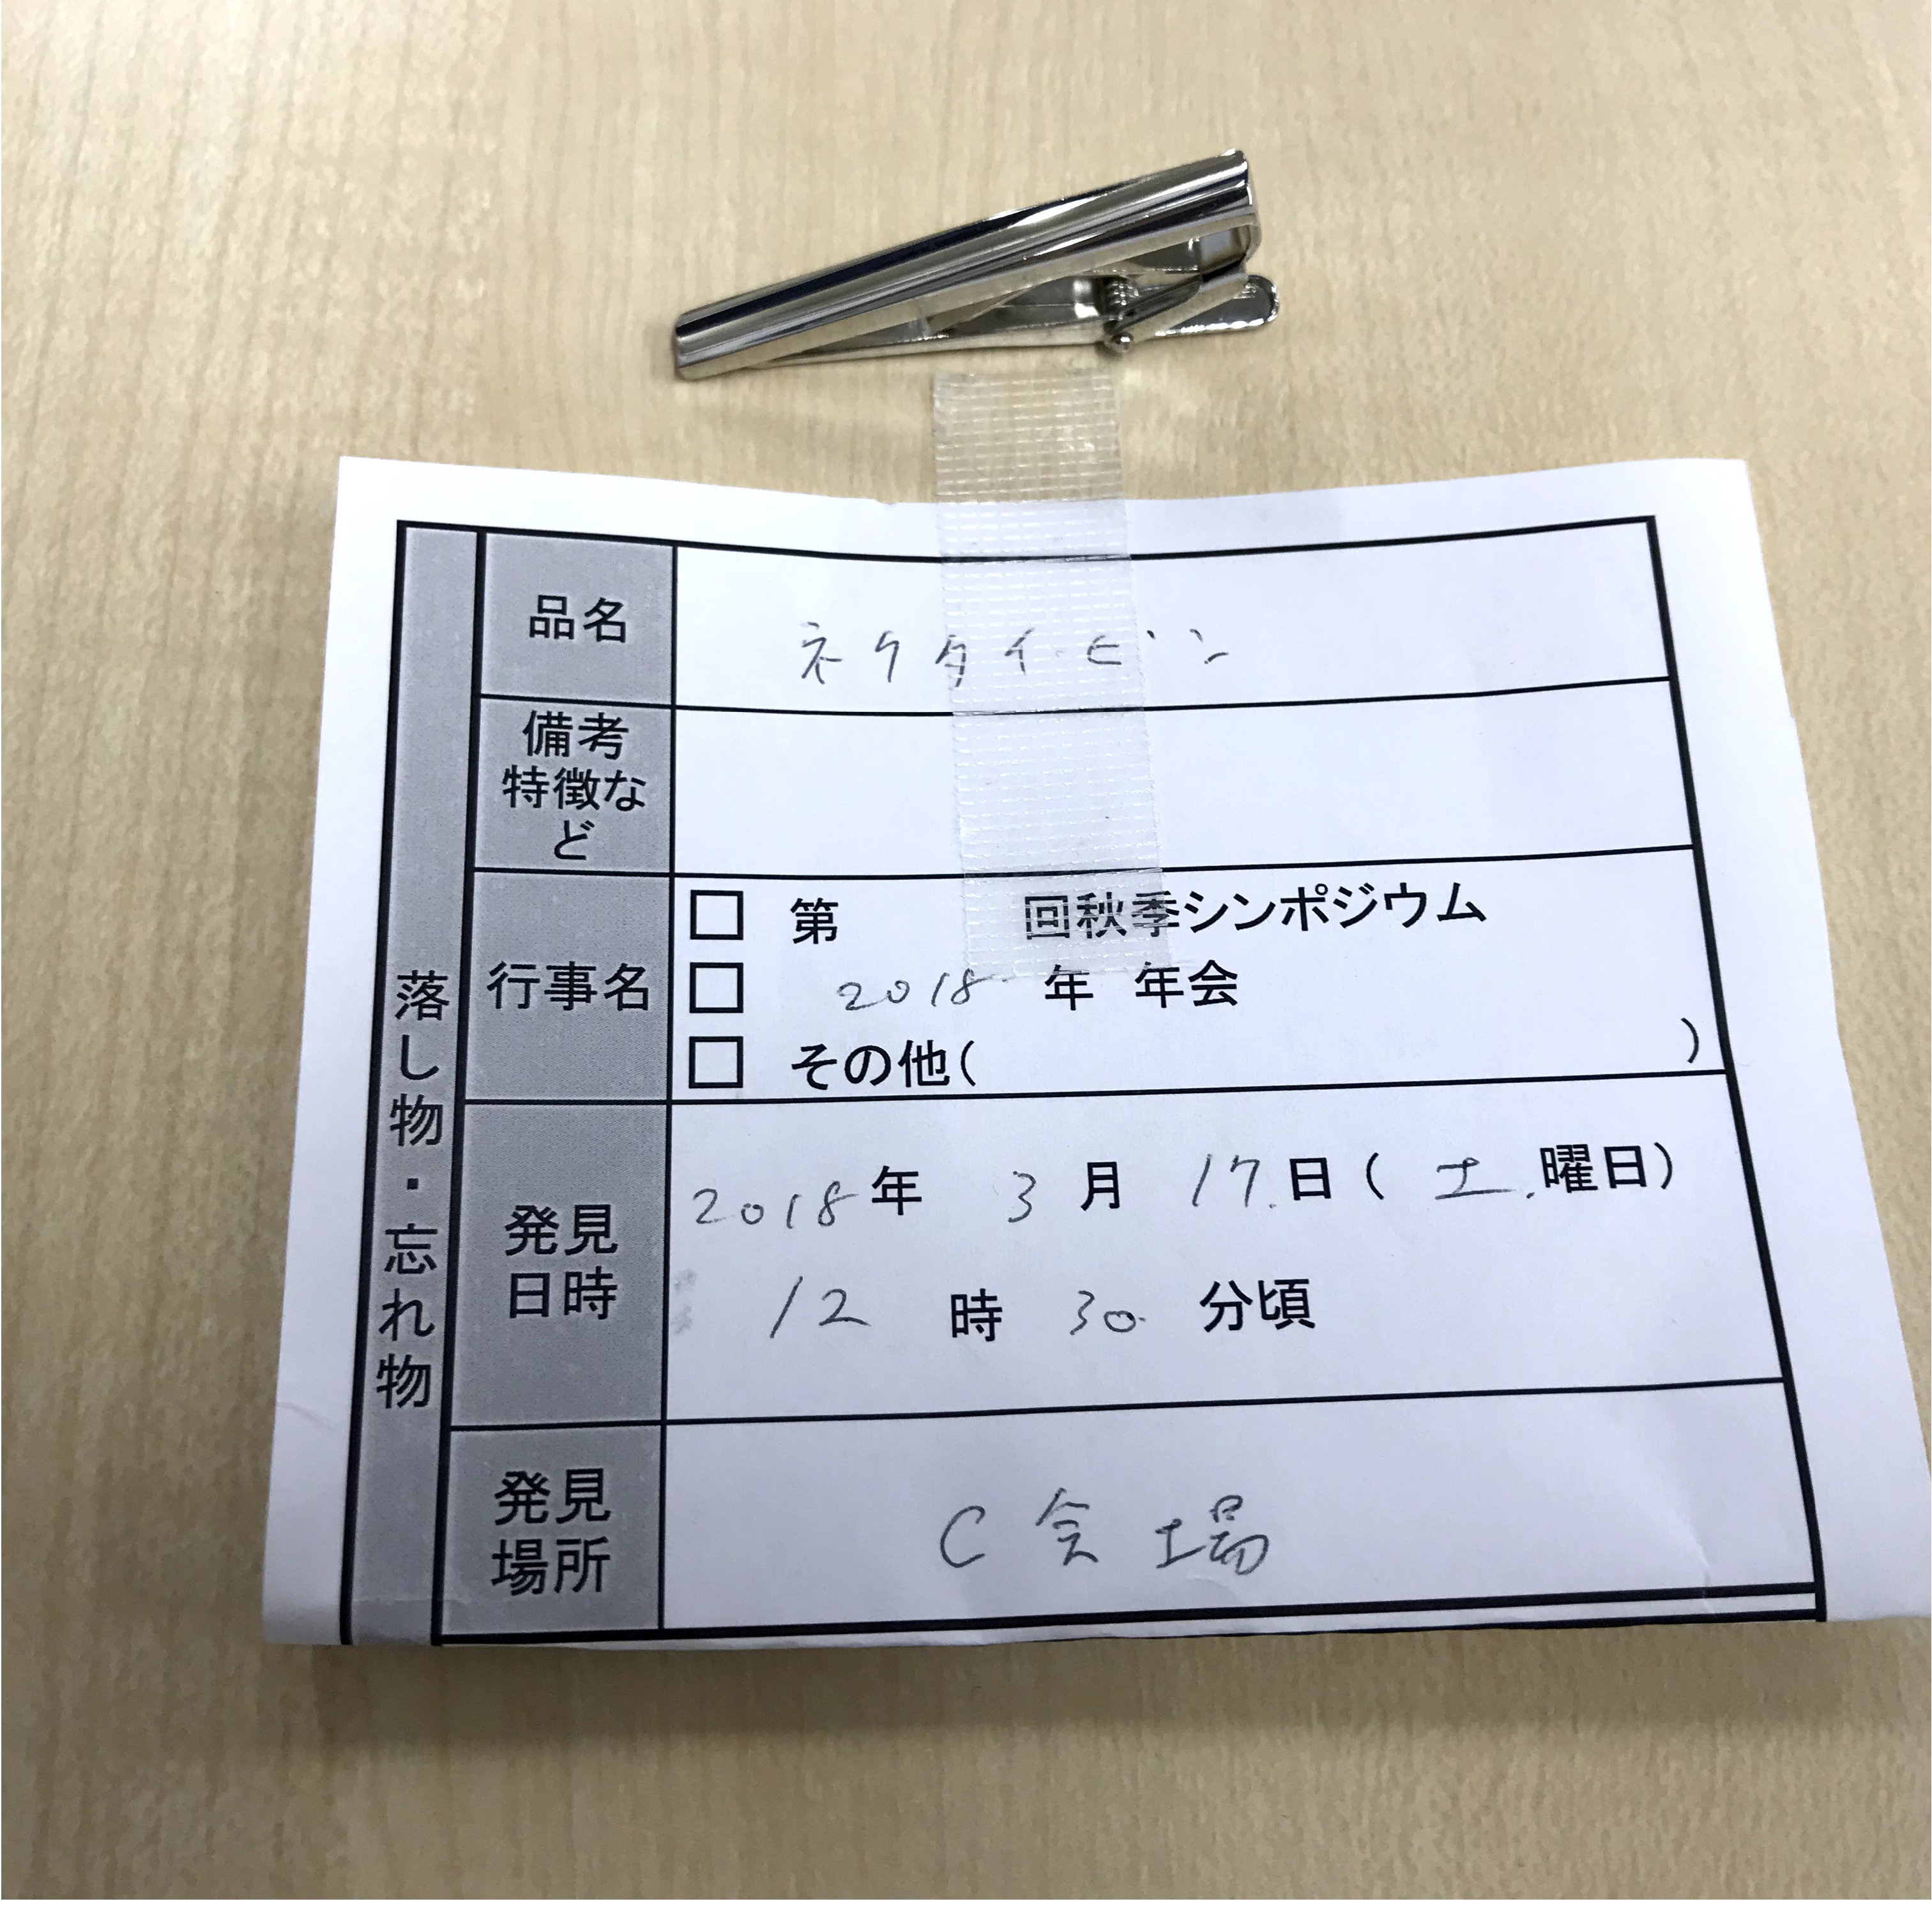 落し物・忘れ物
品名
ネクタイピン
備考
特徴な
ど
行事名
□ 第 回秋季シンポジウム
□ 2018 年 年会
□ その他( )
発見
日時
2018年 3月 17日(土曜日)
12時 30分頃
発見
場所
C会場